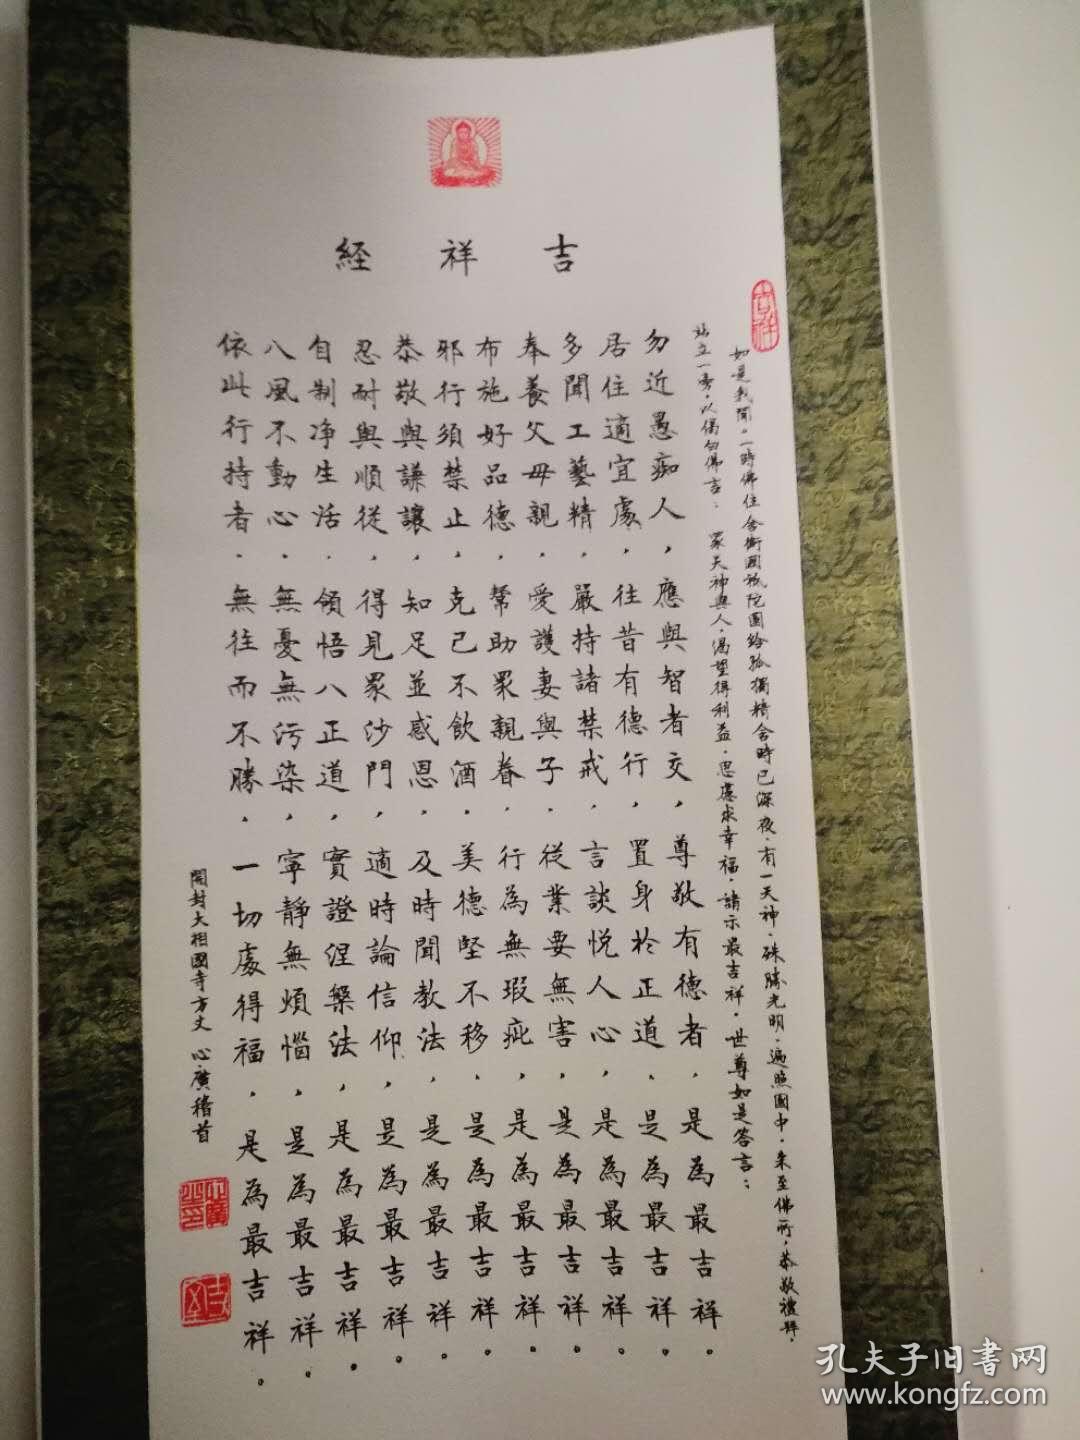 吉祥經
吉祥
如是我聞。一時佛住舍衛國祇陀園給孤獨精舍時已深夜，有一天神，殊勝光明，遍照園中，來至佛所，恭敬禮拜，
站立一旁，以偈白佛言：眾天神與人，渴望得利益，思慮求幸福，請示最吉祥。世尊如是答言：
勿近愚痴人，應與智者交，尊敬有德者，是為最吉祥。
居住適宜處，往昔有德行，置身於正道、是為最吉祥。
多聞工藝精，嚴持諸禁戒，言談悅人心，是為最吉祥。
奉養父母親，愛護妻與子，從業要無害，是為最吉祥。
布施好品德，幫助眾親眷，行為無瑕疵，是為最吉祥。
邪行須禁止，克己不飲酒，美德堅不移，是為最吉祥。
恭敬與謙讓，知足並感恩，及時聞教法，是為最吉祥。
忍耐與順從，得見眾沙門，適時論信仰，是為最吉祥。
自制净生活，領悟八正道，實證涅槃法，是為最吉祥。
八風不動心，無憂無污染，寧靜無煩惱，是為最吉祥。
依此行持者，無往而不勝，一切處得福，是為最吉祥。
開封大相國寺方丈 心廣稽首
孔夫子旧書网
www.kongfz.com